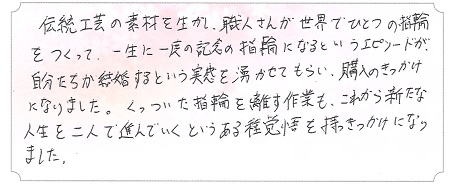 伝統工芸の素材を生かし、職人さんが世界でひとつの指輪
をつくって、一生に一度の記念の指輪になるというエピソードが
自分たちが結婚するという実感を湧かせてもらい、購入のきっかけ
になりました。くっついた指輪を離す作業も、これから新たな
人生を二人で進んでいくというある種覚悟を持つきっかけになり
ました。